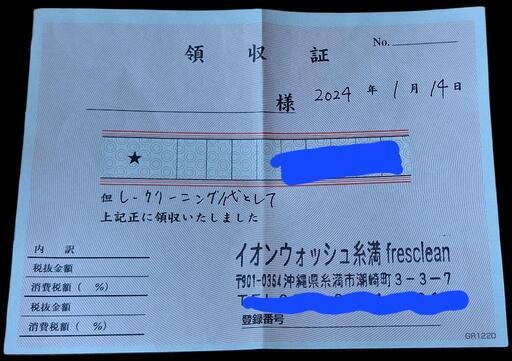 No.
領収証
様 2024年 1月 14日
★
但 しークリーニング代として
上記正に領収いたしました
内訳
税抜金額
消費税額( %)
税抜金額
消費税額( %)
イオンウォッシュ糸満 fresclean
〒901-0364 沖縄県糸満市潮崎町3-3-7
登録番号
GR1220